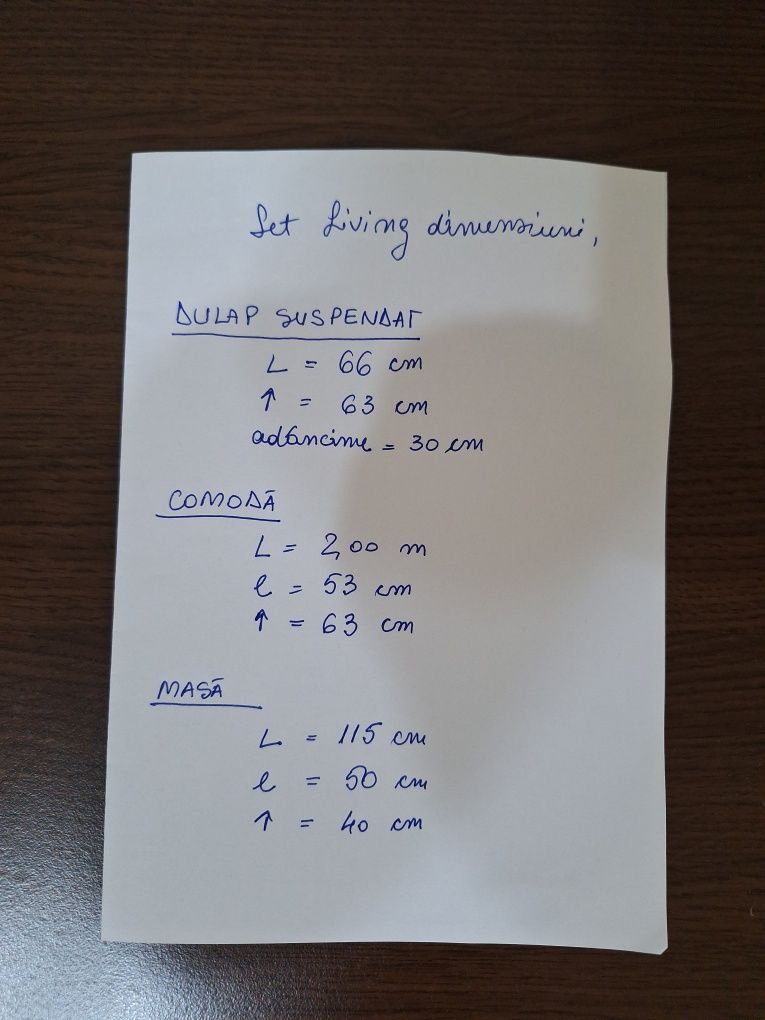 Set Living dimensiuni,
DULAP SUSPENDAT
L = 66 cm
↑ = 63 cm
adâncime = 30 cm
COMODĂ
L = 2,00 m
l = 53 cm
↑ = 63 cm
MASĂ
L = 115 cm
l = 50 cm
↑ = 40 cm